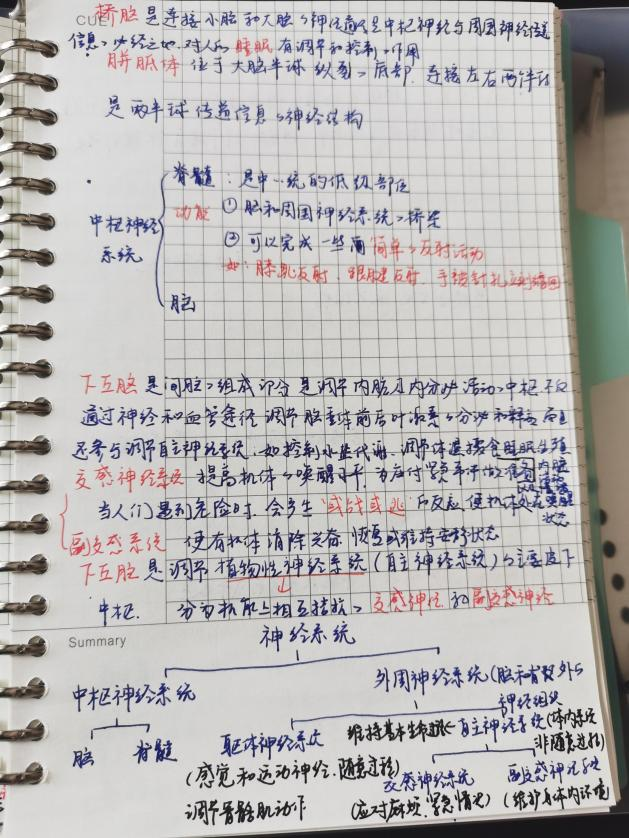 CUE
桥脑是连接小脑和大脑的神经通路是中枢神经与周围神经传递
信息的必经之地.对人的睡眠有调节和控制的作用
胼胝体位于大脑半球纵裂的底部.连接左右两半球
是两半球传递信息的神经结构
脊髓:是中一统的低级部位
功能 ①脑和周围神经系统的桥梁
中枢神经系统
②可以完成一些简单的反射活动
如:膝跳反射.跟腱反射.手被针扎立刻缩回
脑
下丘脑是间脑的组成部分是调节内脏及内分泌活动的中枢不仅
通过神经和血管途径调节脑垂体前后叶激素的分泌和释放而且
还参与调节自主神经系统.如控制水盐代谢.调节体温摄食睡眠生殖
内脏
交感神经系统 提高机体的唤醒水平,为应付紧急事件做准备
当人们遇到危险时.会产生"或战或逃"的反应使机体处在唤醒
状态
副交感系统 使有机体消除 恢复或维持安静状态
下丘脑是调节植物性神经系统(自主神经系统)的主要皮下
中枢. 分为机能上相互拮抗的交感神经和副交感神经
Summary
神经系统
中枢神经系统 外周神经系统(脑和脊髓外的
神经组织
脑 脊髓 躯体神经系统 维持基本生命过程 自主神经系统(体内系统
非随意过程)
(感觉和运动神经.随意过程) 交感神经系统 副交感神经系统
调节骨骼肌动作 (应对麻烦.紧急情况) (维护身体内环境